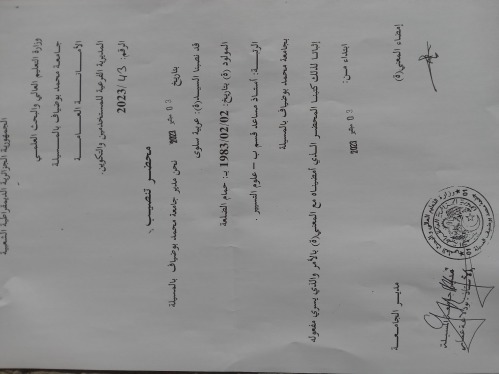 الجمهورية الجزائرية الديمقراطية الشعبية
وزارة التعليم العالي والبحث العلمي
جامعة محمد بوضياف بالمسيلة
الأمانة العامة
المديرية الفرعية للمستخدمين والتكوين.
الرقم: 3/ /2023
محضر تنصيب
بتاريخ 03 نحن مدير جامعة محمد بوضياف بالمسيلة
قد نصبنا السيد(ة): عربية سلوى
المولود (ة) بتاريخ: 1983/02/02 بـ: حمام الضلعة
الرتبة: أستاذ مساعد قسم ب – علوم التسيير .
بجامعة محمد بوضياف بالمسيلة
إثباتا لذلك كتبنا المحضر الذي أمضيناه مع المعني(ة) بالأمر والذي يسري مفعوله
ابتداء من: 03 2023
إمضاء المعني(ة)
مدير الجامعة